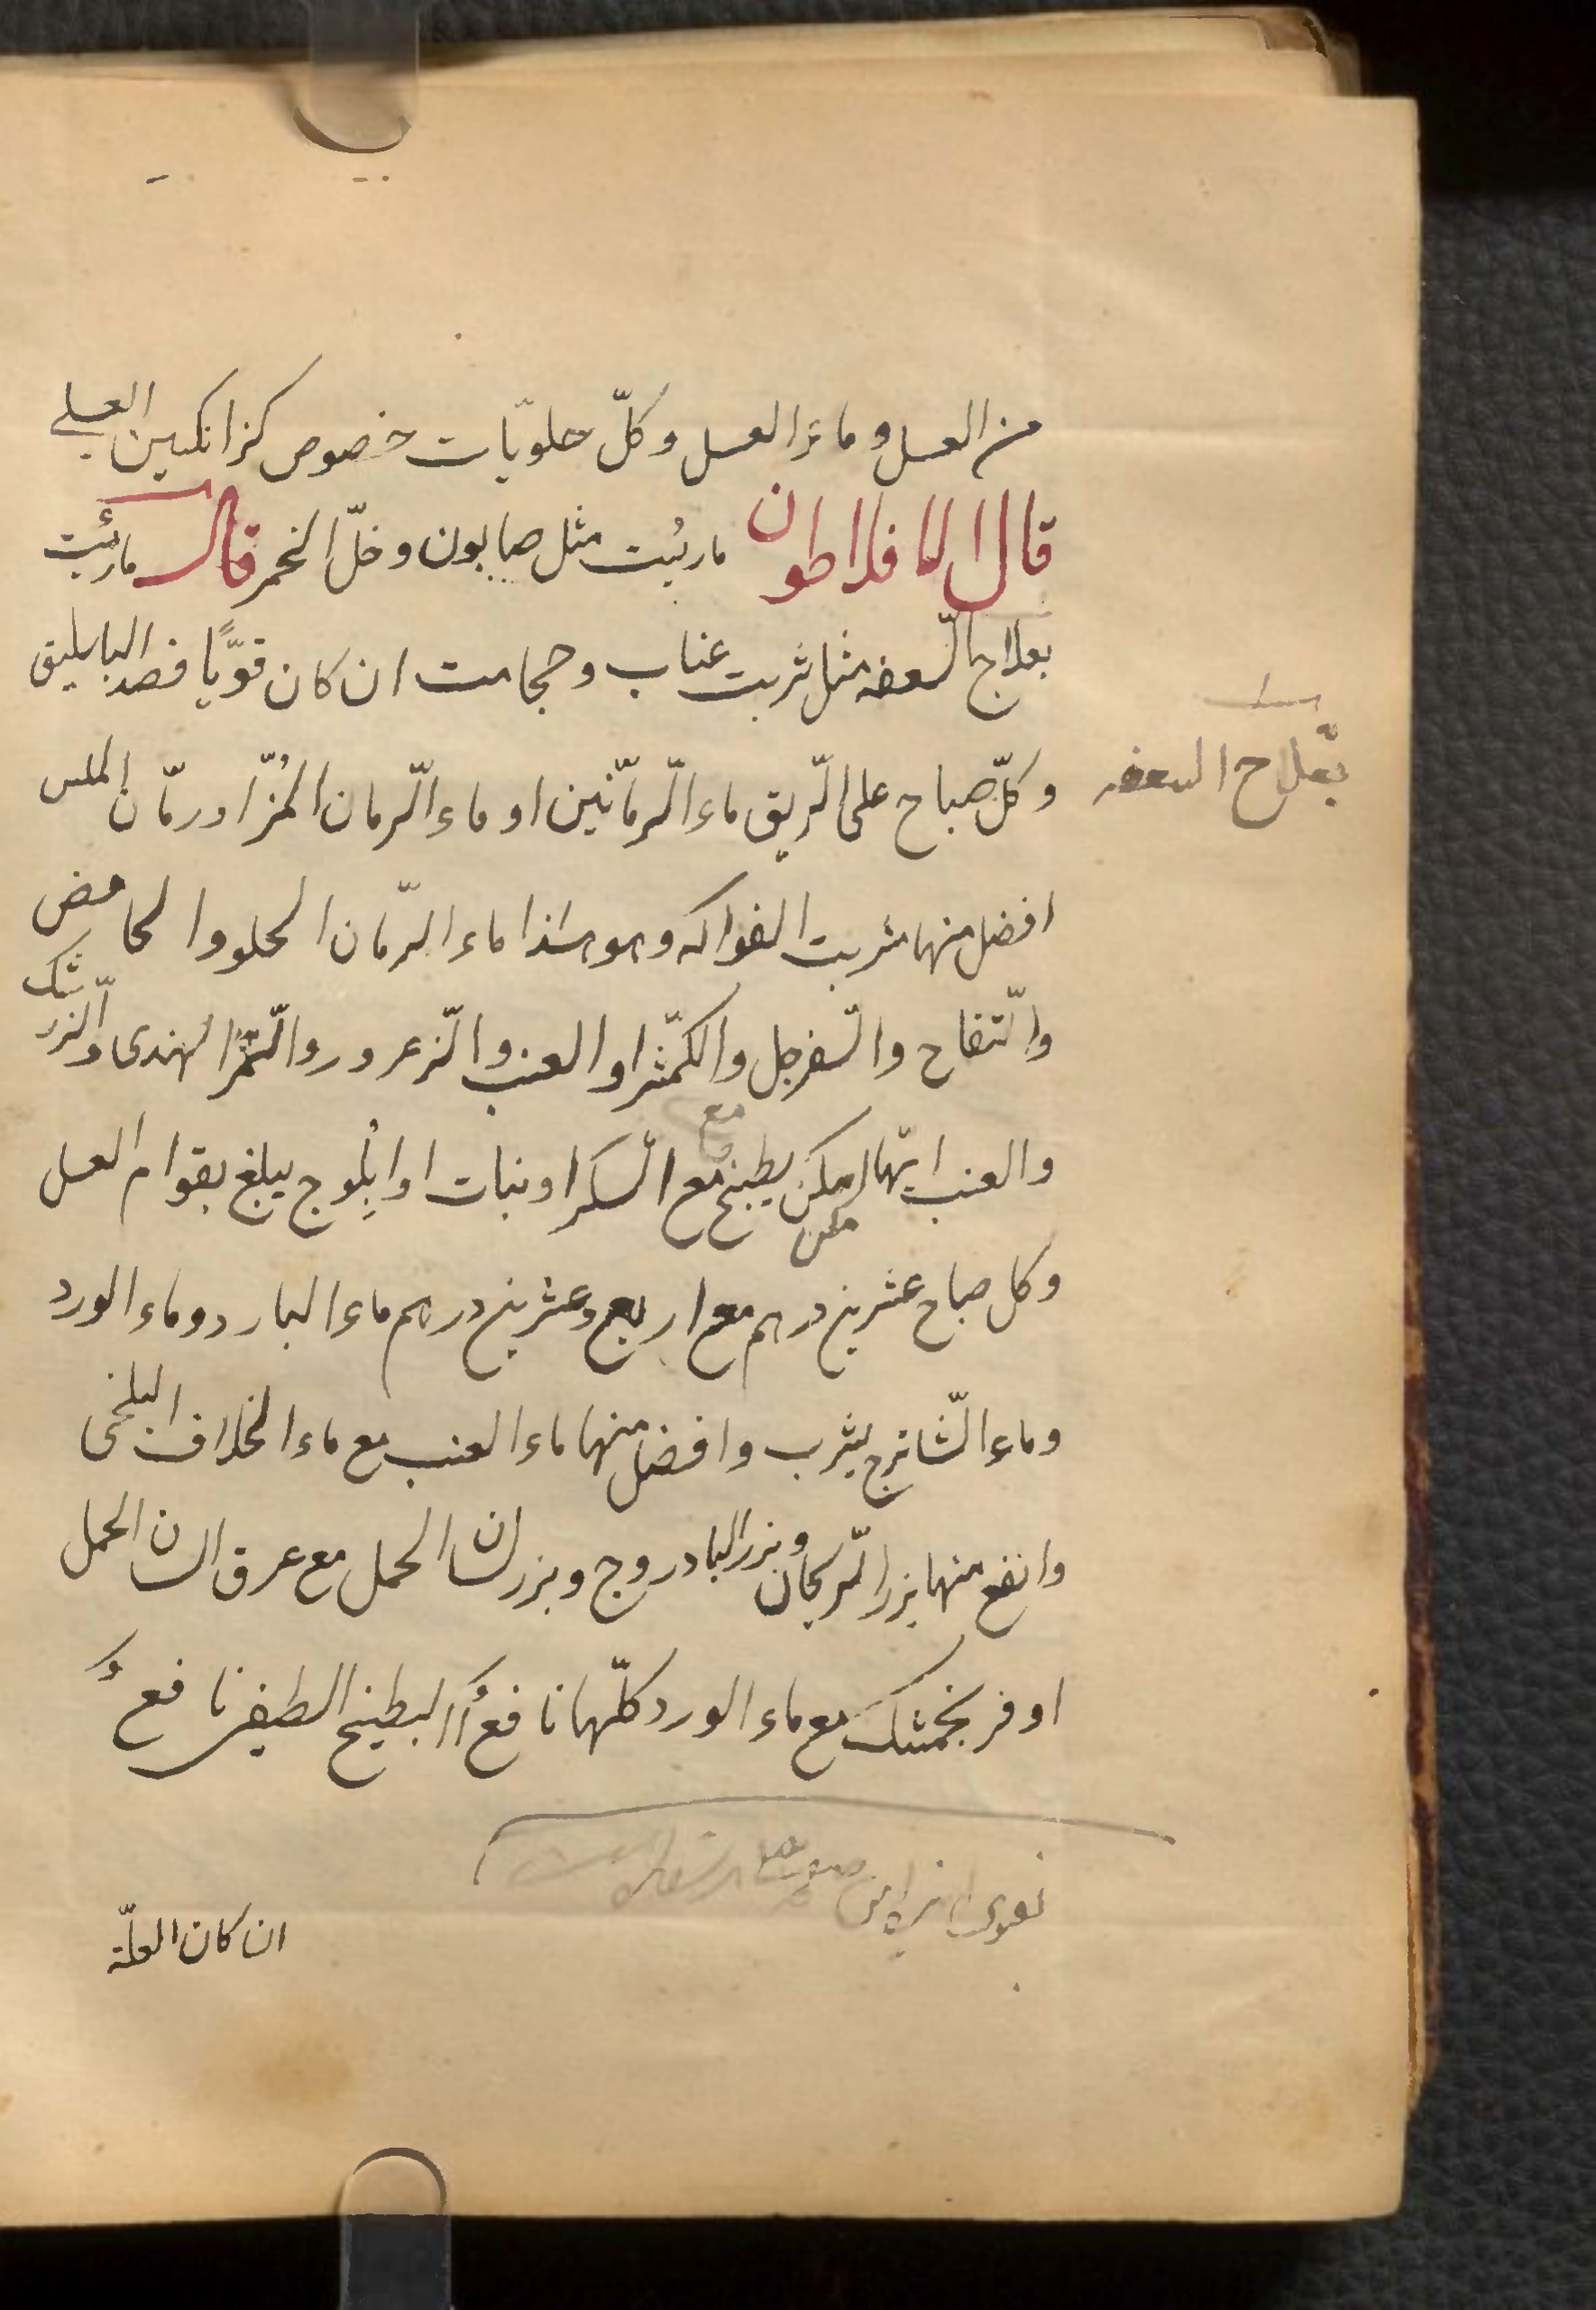 من العسل و ماءَ العسل وكلّ حلويّات خصوص كزانكبين العسلے
قال الافلاطون ما رئیت مثل صابون وخلّ الخمر قال ما رئیت
بعلاج السّعفه مثل شربت عناب وحجامت ان كان قويًّا فصد الباسليق
بعلاج السعفه
وكلّ صباح على الرّيق ماء الرّمّانين او ماء الرّمان المُزّ او رمّان الملس
افضل منها شربت الفواكه وهو هٰذا ماء الرّمّان الحلو والحامض
والتّفاح والسّفرجل والكمّثرا والعنب والزّعرور والتّمر الهندى والزّرشك
والعنب ايّها لممكن يطبخ مع السّكر او نبات او ابلوج يبلغ بقوام العسل
مع
ممكن
وكل صباح عشرين درهم مع اربع وعشرين درهم ماء البارد وماء الورد
وماء الشّاترج يشرب وافضل منها ماء العنب مع ماء الخلاف البلخى
وانفع منها بزر الرّيحان وبزر البادروج وبزر لسان الحمل مع عرق السان الحمل
او فرنجمشك مع ماء الورد كلّها نافعٌ البطيخ الطيفر نافعٌ
ان كان العلّة